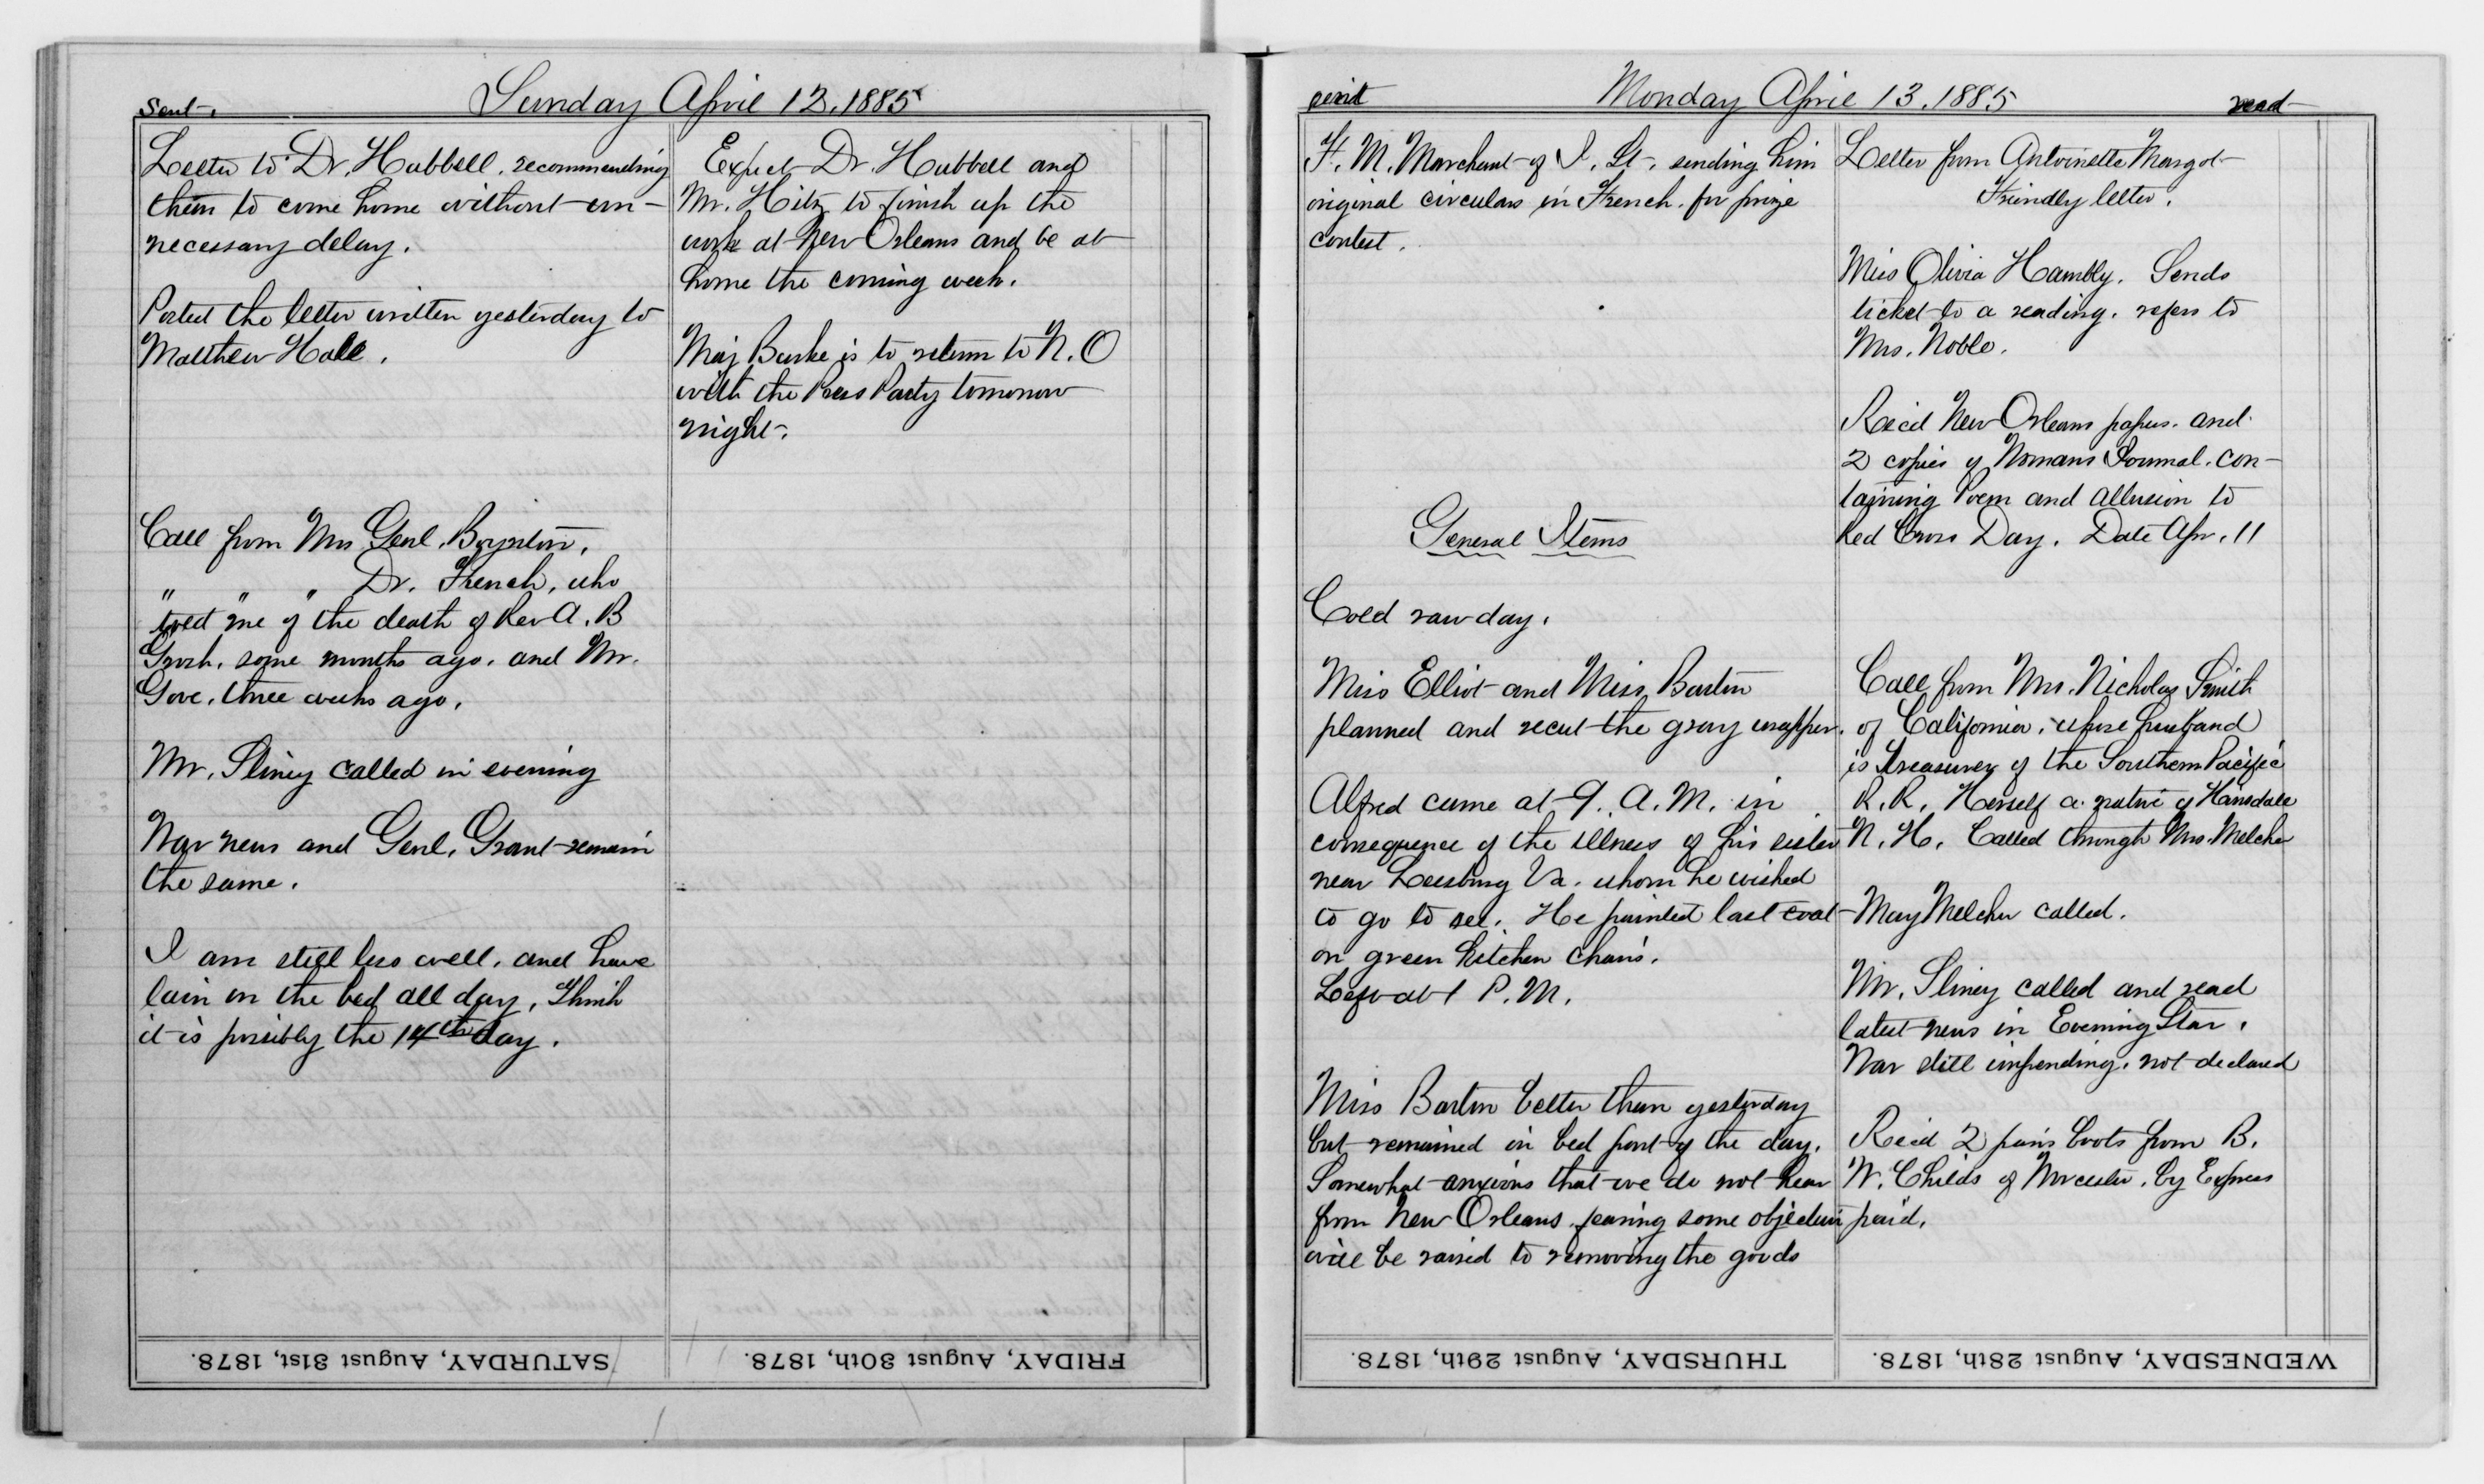 Sunday April 12, 1885
Sent.
Letter to Dr. Hubbell, recommending
them to come home without un-
necessary delay.
Posted the letter written yesterday to
Matthew Hall.
Call from Mrs Genl. Boynton,
" " " Dr. French, who
told me of the death of Rev A. B
Grosh, some months ago, and Mr.
Gove, three weeks ago.
Mr. Sliney called in evening
War news and Genl. Grant remain
the same.
I am still less well, and have
lain on the bed all day, Think
it is possibly the 14th day.
Expect Dr. Hubbell and
Mr. Hitz to finish up the
work at New Orleans and be at
home the coming week.
Maj Burke is to return to N. O
with the Press Party tomorrow
night.
SATURDAY, August 31st, 1878.
FRIDAY, August 30th, 1878.
Monday April 13, 1885
sent
F. M. Marchant of I. St., sending him
original circulars in French, for prize
contest.
General Items
Cold raw day.
Miss Elliot and Miss Barton
planned and recut the gray wrapper.
Alfred came at 9. A. M. in
consequence of the illness of his sister
near Leesburg Va. whom he wished
to go to see. He painted last coat
on green kitchen chairs.
Left at 1 P. M.
Miss Barton better than yesterday
but remained in bed part of the day.
Somewhat anxious that we do not hear
from New Orleans, fearing some objection
will be raised to removing the goods
read
Letter from Antoinette Margot
Friendly letter.
Miss Olivia Hambly. Sends
ticket to a reading, refers to
Mrs. Noble.
Rec'd New Orleans papers, and
2 copies of Womans Journal, con-
taining Poem and allusion to
Red Cross Day. Date Apr. 11
Call from Mrs. Nicholas Smith
of California, whose husband
is Treasurer of the Southern Pacific
R. R. Herself a native of Hinsdale
N. H. Called through Mrs. Melcher
May Melcher called.
Mr. Sliney called and read
latest news in Evening Star,
War still impending, not declared
Rec'd 2 pairs boots from B.
W. Childs of Worcester, by Express
paid.
THURSDAY, August 29th, 1878.
WEDNESDAY, August 28th, 1878.